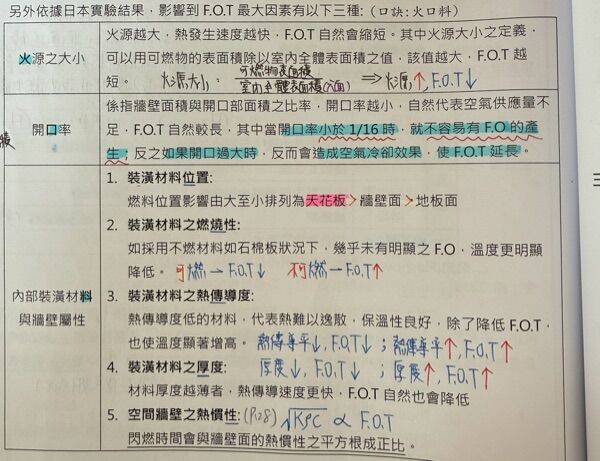 另外依據日本實驗結果，影響到 F.O.T 最大因素有以下三種:（口訣:火口料）
火源之大小
火源越大，熱發生速度越快，F.O.T 自然會縮短。其中火源大小之定義，
可以用可燃物的表面積除以室內全體表面積之值，該值越大，F.O.T 越
短。 火源大小: 可燃物表面積/室內全體表面積(六面) ⇒火源↑, F.O.T↓
開口率
係指牆壁面積與開口部面積之比率，開口率越小，自然代表空氣供應量不
足，F.O.T 自然較長，其中當開口率小於 1/16 時，就不容易有 F.O 的產
生；反之如果開口過大時，反而會造成空氣冷卻效果，使 F.O.T 延長。
內部裝潢材料
與牆壁屬性
1. 裝潢材料位置:
燃料位置影響由大至小排列為天花板>牆壁面>地板面
2. 裝潢材料之燃燒性:
如採用不燃材料如石棉板狀況下，幾乎未有明顯之 F.O，溫度更明顯
降低。 可燃→F.O.T↓ 不可燃→F.O.T↑
3. 裝潢材料之熱傳導度:
熱傳導度低的材料，代表熱難以逸散，保溫性良好，除了降低 F.O.T，
也使溫度顯著增高。 熱傳導率↓, F.O.T↓ ; 熱傳導率↑, F.O.T↑
4. 裝潢材料之厚度: 厚度↓, F.O.T↓ ; 厚度↑, F.O.T↑
材料厚度越薄者，熱傳導速度更快，F.O.T 自然也會降低
5. 空間牆壁之熱慣性: (P.28) √KρC ∝ F.O.T
閃燃時間會與牆壁面的熱慣性之平方根成正比。